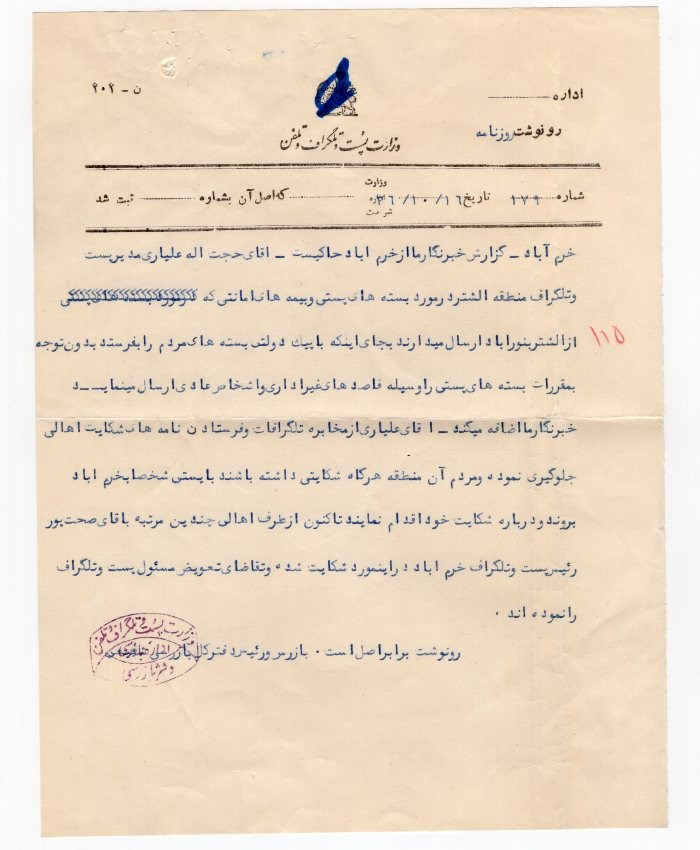 اداره
ن - ۲۰۲
رونوشت روزنامه
وزارت پست و تلگراف و تلفن
شماره ۱۷۹ تاریخ ۳۶/۱۰/۱۶ وزارت اداره شرکت که اصل آن بشماره ثبت شد
خرم آباد - گزارش خبرنگار ما از خرم اباد حاکیست - اقای حجت اله علیاری مدیر پست
وتلگراف منطقه الشتر در مورد بسته های پستی و بیمه های امانتی که
از الشتر بنوراباد ارسال میدارند بجای اینکه با پیک دولتی بسته های مردم را بفرستد بدون توجه
۱۱۵
بمقررات بسته های پستی را وسیله قاصد های غیر اداری و اشخاص عادی ارسال مینمایــد
خبرنگار ما اضافه میکند - اقای علیاری از مخابره تلگرافات و فرستادن نامه های شکایت اهالی
جلوگیری نموده و مردم آن منطقه هرگاه شکایتی داشته باشند بایستی شخصا بخرم اباد
بروند و درباره شکایت خود اقدام نمایند تاکنون از طرف اهالی چندین مرتبه باقای صحت پور
رئیس پست وتلگراف خرم اباد در اینمورد شکایت شده و تقاضای تعویض مسئول پست وتلگراف
را نموده اند .
رونوشت برابر اصل است . بازرس و رئیس دفتر کل بازرسی
وزارت پست و تلگراف و تلفن
دفتر بازرسی